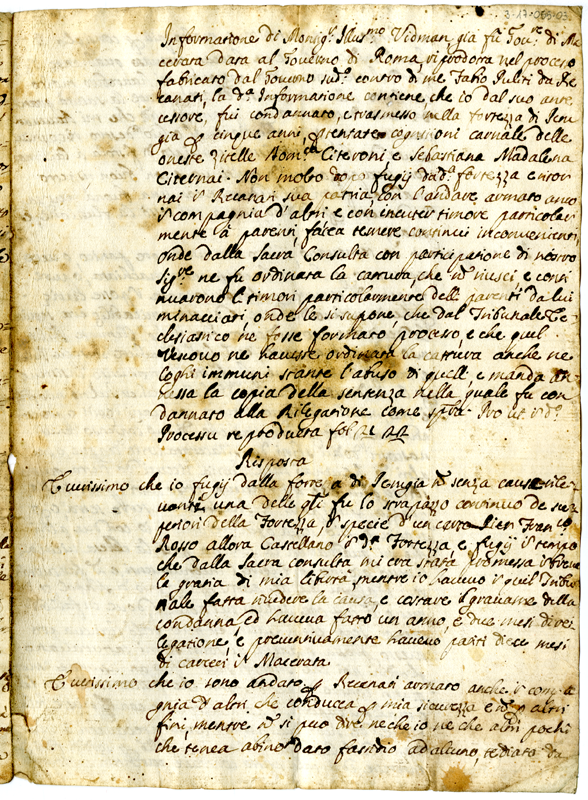 3-17-009-03
Informatione di Monsig.r Illus.mo Vidman già fù Gov.re di Ma
cerata data al Governo di Roma, riprodotta nel processo
fabricato dal Governo sud.o contro di me Fabio Ruliti da Re
canati, la d.a Informatione contiene, che io dal suo ante
cessore, fui condannato, e trasmesso nella fortezza di Peru
gia p cinque anni, p tentate cognitioni carnale delle
oneste zitelle Dom.ca Citernai, e Sebastiana Madalena
Citernai. Non molto dopo fugij da d.a fortezza e ritor
nai in Recanati sua patria, con l'andare armato anco
in compagnia d'altri e con incuter timore particolar
mente a parenti, facea temere continui inconvenienti
onde dalla Sacra Consulta con participatione di nostro
Sig.re ne fu ordinata la cattura, che n riuscì, e conti
nuarono li timori particolarmente delli parenti da lui
minacciati, onde le si supone, che dal Tribunale Ec
clesiastico ne fosse formato processo, e che quel
Vescovo ne havesse ordinata la cattura anche ne
loghi immuni stante l'abuso di quelli, e manda an
nessa la copia della sentenza nella quale fu con
dannato alla Rilegatione come sopra. Pro ut in d.o
Processu reproducta fol
Risposta
È verissimo che io fugij dalla fortezza di Perugia n senza cause rile
vanti una delle q.li fu lo strapazzo continuo de su
periori della Fortezza, in specie d'un certo Fran.co
Rosso allora Castellano in d.a Fortezza, e fugij in tempo
che dalla Sacra consulta mi era stata promessa in breve
la gratia di mia libertà, mentre io havevo in quel Tribu
nale fatta rivedere la causa, e costare il gravame della
condanna, ed haveva fatto un anno, e due mesi di re
legatione, e preventivamente havevo patiti dieci mesi
di carceri in Macerata
È verissimo che io sono andato p Recanati armato anche in compa
gnia d'altri, che conducea p mia sicurezza e n p altri
fini, mentre n si può dire ne che io ne che altri pochi
che tenea abino dato fastidio ad alcuno, tediato da